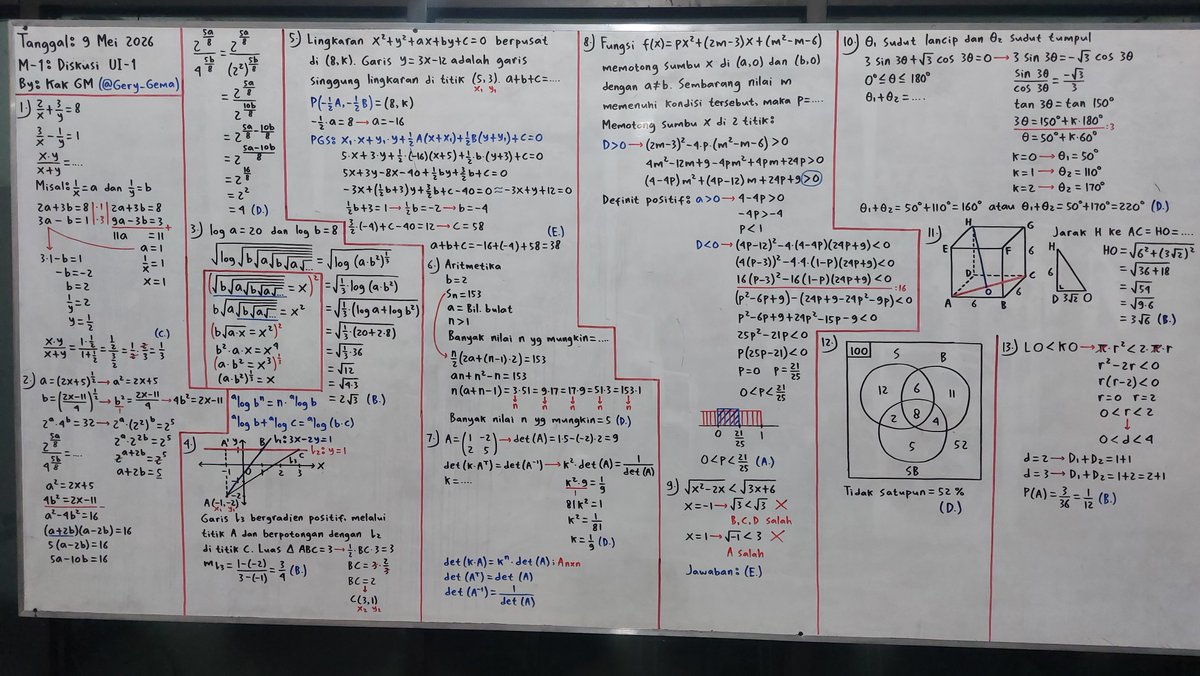 Tanggal: 9 Mei 2026
M-1: Diskusi UI-1
By: Kak GM (@Gery_Gema)
1.) 2/x + 3/y = 8
3/x - 1/y = 1
x.y/x+y = ....
Misal: 1/x = a dan 1/y = b
2a+3b=8 |.1| 2a+3b=8
3a-b=1 |.3| 9a-3b=3 +
11a = 11
a = 1
1/x = 1
x = 1
3.1-b=1
-b=-2
b=2
1/y=2
y=1/2
(C.)
x.y/x+y = 1.1/2 / 1+1/2 = 1/2 / 3/2 = 1/2 . 2/3 = 1/3
2.) a=(2x+5)^1/2 → a²=2x+5
b=(2x-11/4)^1/2 → b²=2x-11/4 → 4b²=2x-11
2^a.4^b=32 → 2^a.(2²)^b=2^5
2^a.2^2b=2^5
2^a+2b=2^5
a+2b=5
2^5a/8 / 4^5b/8 = ....
a²=2x+5
4b²=2x-11 -
a²-4b²=16
(a+2b)(a-2b)=16
5(a-2b)=16
5a-10b=16
2^5a/8 / 4^5b/8 = 2^5a/8 / (2²)^5b/8
= 2^5a/8 / 2^10b/8
= 2^5a/8-10b/8
= 2^5a-10b/8
= 2^16/8
= 2²
= 4 (D.)
3.) log a = 20 dan log b = 8
√log √b√a√b√a√.... = √log (a.b²)^1/3
(√b√a√b√a√.... = x)²
b√a√b√a√.... = x²
(b√a.x = x²)²
b².a.x = x⁴
(a.b² = x³)^1/3
(a.b²)^1/3 = x
= √1/3.log (a.b²)
= √1/3.(log a+log b²)
= √1/3.(20+2.8)
= √1/3.36
= √12
= √4.3
= 2√3 (B.)
ᵃlog bⁿ = n.ᵃlog b
ᵃlog b+ᵃlog c=ᵃlog (b.c)
4.) A' y B l₁:3x-2y=1
l₂:y=1
C
l₃
-1 0 1 2 3 x
-1
-2
A(-1,-2)
x₁ y₁
Garis l₃ bergradien positif, melalui
titik A dan berpotongan dengan l₂
di titik C. Luas △ ABC=3 → 1/2.BC.3=3
BC=3.2/3
BC=2
↓
C(3,1)
x₂ y₂
m l₃ = 1-(-2)/3-(-1) = 3/4 (B.)
5.) Lingkaran x²+y²+ax+by+c=0 berpusat
di (8,k). Garis y=3x-12 adalah garis
singgung lingkaran di titik (5,3). a+b+c=....
x₁ y₁
P(-1/2A,-1/2B)=(8,k)
-1/2.a=8 → a=-16
PGS: x₁.x+y₁.y+1/2A(x+x₁)+1/2B(y+y₁)+C=0
5.x+3.y+1/2.(-16)(x+5)+1/2.b.(y+3)+c=0
5x+3y-8x-40+1/2by+3/2b+c=0
-3x+(1/2b+3)y+3/2b+c-40=0 ≈ -3x+y+12=0
1/2b+3=1 → 1/2b=-2 → b=-4
3/2.(-4)+c-40=12 → c=58
(E.)
a+b+c=-16+(-4)+58=38
6.) Aritmetika
b=2
Sn=153
a=Bil. bulat
n>1
Banyak nilai n yg mungkin=....
n/2(2a+(n-1).2)=153
an+n²-n=153
n(a+n-1)=3.51=9.17=17.9=51.3=153.1
n n n n n
Banyak nilai n yg mungkin=5 (D.)
7.) A=(1 -2
2 5) → det(A)=1.5-(-2).2=9
det(k.Aᵀ)=det(A⁻¹) → k².det(A)=1/det(A)
k=....
k².9=1/9
81k²=1
k²=1/81
k=1/9 (D.)
det (k.A)=kⁿ.det (A); Anxn
det (Aᵀ)=det (A)
det (A⁻¹)=1/det (A)
8.) Fungsi f(x)=px²+(2m-3)x+(m²-m-6)
memotong sumbu x di (a,0) dan (b,0)
dengan a≠b. Sembarang nilai m
memenuhi kondisi tersebut, maka p=....
Memotong sumbu x di 2 titik:
D>0 → (2m-3)²-4.p.(m²-m-6)>0
4m²-12m+9-4pm²+4pm+24p>0
(4-4p)m²+(4p-12)m+24p+9>0
Definit positif: a>0 → 4-4p>0
-4p>-4
p<1
D<0 → (4p-12)²-4.(4-4p)(24p+9)<0
(4(p-3))²-4.4.(1-p)(24p+9)<0
16(p-3)²-16(1-p)(24p+9)<0 :16
(p²-6p+9)-(24p+9-24p²-9p)<0
p²-6p+9+24p²-15p-9<0
25p²-21p<0
p(25p-21)<0
p=0 p=21/25
0<p<21/25
0 21/25 1
0<p<21/25 (A.)
9.) √x²-2x < √3x+6
x=-1 → √3<√3 ✗
B,C,D salah
x=1 → √-1<3 ✗
A salah
Jawaban: (E.)
10.) θ₁ sudut lancip dan θ₂ sudut tumpul
3 sin 3θ+√3 cos 3θ=0 → 3 sin 3θ=-√3 cos 3θ
0°≤θ≤180°
θ₁+θ₂=....
sin 3θ/cos 3θ=-√3/3
tan 3θ=tan 150°
3θ=150°+k.180° :3
θ=50°+k.60°
k=0 → θ₁=50°
k=1 → θ₂=110°
k=2 → θ₂=170°
θ₁+θ₂=50°+110°=160° atau θ₁+θ₂=50°+170°=220° (D.)
11.) H G
E F
D C
O
A 6 B
6
6
Jarak H ke AC=HO=....
H
6
D 3√2 O
HO=√6²+(3√2)²
=√36+18
=√54
=√9.6
=3√6 (B.)
12.) 100
S B
12 6 11
8
2 4
5
52
SB
Tidak satupun=52 %
(D.)
13.) LO<KO → π.r²<2.π.r
r²-2r<0
r(r-2)<0
r=0 r=2
0<r<2
↓
0<d<4
d=2 → D₁+D₂=1+1
d=3 → D₁+D₂=1+2=2+1
P(A)=3/36=1/12 (B.)